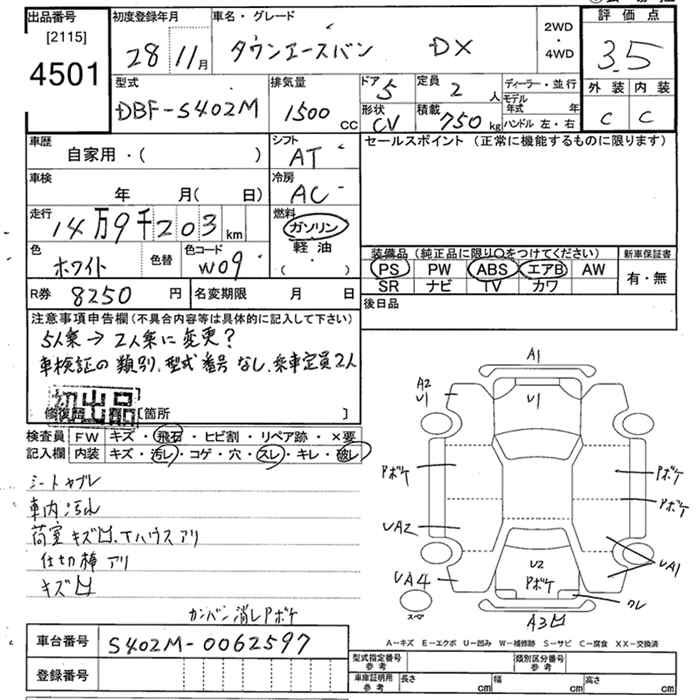 出品番号 初度登録年月 車名・グレード 2WD 評価点
[2115] 28 11月 タウンエースバン DX ・4WD 3.5
4501 型式 排気量 ドア 5 定員 2人 ディーラー・並行 外装 内装
DBF-S402M 1500 cc 形状 CV 積載 750kg モデル年式 年 C C
ハンドル 左・右
車歴 シフト セールスポイント (正常に機能するものに限ります)
自家用・( ) AT
車検 冷房
年 月( 日) AC
走行 燃料
14万9千203km ガソリン
色 色替 色コード 軽油 装備品 (純正品に限り○をつけてください) 新車保証書
ホワイト W09 ・( ) PS PW ABS エアB AW 有・無
R券 8250 円 名変期限 月 日 SR ナビ TV カワ
後日品
注意事項申告欄(不具合内容等は具体的に記入して下さい)
5人乗→2人乗に変更?
車検証の類別、型式番号なし、乗車定員2人
初出品
修復歴 [箇所 ]
検査員 FW キズ・飛石・ヒビ割・リペア跡・×要
記入欄 内装 キズ・汚レ・コゲ・穴・スレ・キレ・破レ
シートヤブレ
車内汚れ
荷室キズ凹、Tハウスアリ
仕切棒アリ
キズ凹
カンバン消しPボケ
A1
A2
U1 U1
Pボケ Pボケ
Pボケ
UA2 UA1
U2
UA4 Pボケ ワレ
A3凹
車台番号 S402M-0062597
登録番号
A-キズ E-エクボ U-凹み W-補修跡 S-サビ C-腐食 XX-交換済
型式指定番号 参考 類別区分番号 参考
車庫証明用 参考 長さ cm 幅 cm 高さ cm